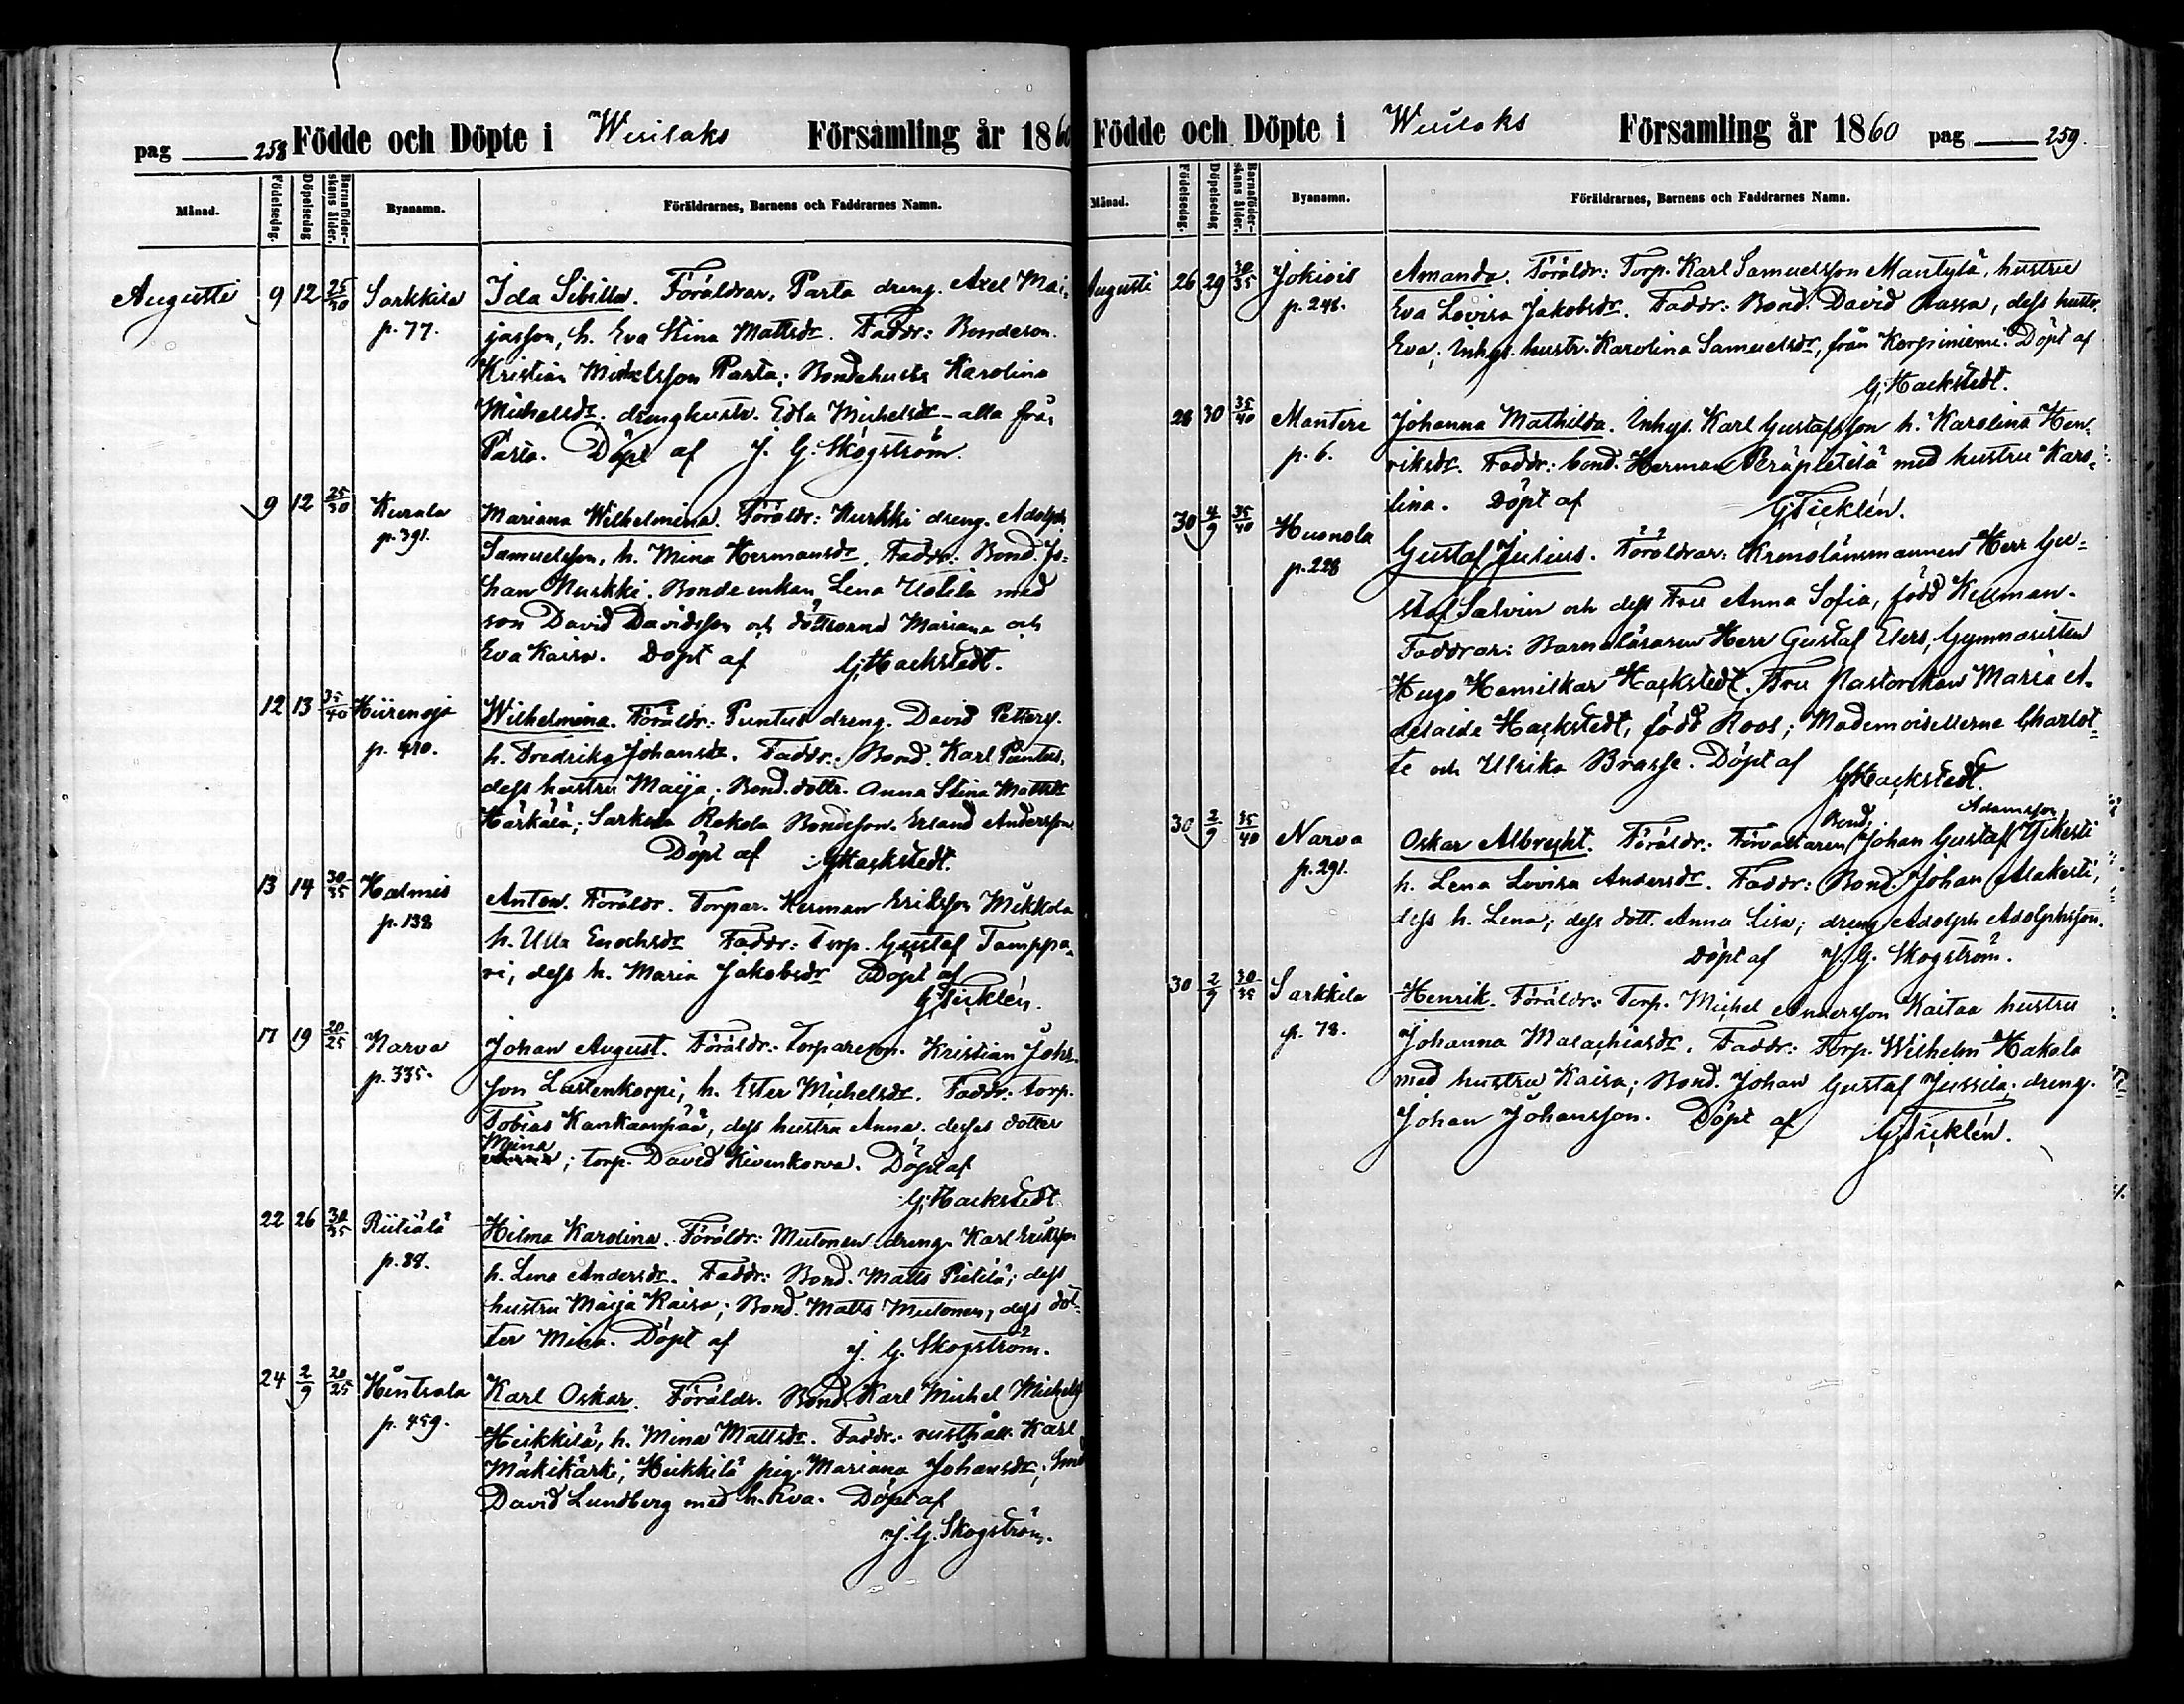 pag 258 Födde och Döpte i Wesilaks Församling år 1860
Månad. Födelsedag. Döpelsedag Barnaföderskans ålder. Byanamn. Föräldrarnes, Barnens och Faddrarnes Namn.
Augusti 9 12 25/30 Sarkkila Ida Sibilla. Föräldrar, Parta dreng. Axel Mai-
p. 77. jasson, h. Eva Stina Mattsdr. Faddr: Bondeson.
Kristian Michelsson Parta; Bondehustr Karolina
Michelsdr. drenghustr. Edla Michelsdr - alla frå,
Parta. Döpt af J. G. Skogström.
9 12 25/30 Kurala Mariana Wilhelmina. Föräldr: Kurkki dreng. Adolph
p. 391. Samuelsson, h. Mina Hermansdr. Faddr: Bond. Jo-
han Kurkki. Bondeenkan Lena Uotila med
son David Davidsson och döttrarna Mariana och
Eva Kaisa. Döpt af G. Hackstedt.
12 13 35/40 Hiirenoja Wilhelmina. Föräldr: Puntus dreng. David Petters.
p. 410. h. Fredrika Johansdr. Faddr: Bond. Karl Puntus,
dess hustru Maija; Bond. dottr. Anna Stina Mattsdr
Härkälä; Rekola Bondeson. Erland Andersson
Döpt af G. Hackstedt.
13 14 30/35 Halmis Anton. Föräldr. Torpar. Herman Eriksson Mikkola
p. 138 h. Ulla Enochsdr Faddr: Torp. Gustaf Tamppa-
ri, dess h. Maria Jakobsdr Döpt af
G. Ticklén.
17 19 20/25 Narva Johan August. Föräldr: Torpareson. Kristian Johs-
p. 335. son Lastenkorpi, h. Ester Michelsdr. Faddr: torp.
Tobias Kankaanpää, dess hustru Anna. desses dotter
Mina; torp. David Kivenkorva. Döpt af
G. Hackstedt
22 26 30/35 Riitiälä Hilma Karolina. Föräldr: Mutonen dreng. Karl Eriksson
p. 88. h. Lena Andersdr. Faddr: Bond. Matts Pietilä; dess
hustru Maija Kaisa; Bond. Matts Mutonen, dess dot-
ter Mina. Döpt af J. G. Skogström.
24 2/9 20/25 Hintsala Karl Oskar. Föräldr. Bond. Karl Michel Michels
p. 459. Heikkilä, h. Mina Mattsdr. Faddr: rusthåll. Karl
Mäkikärki; Heikkilä pig. Mariana Johansdr; Smed
David Lundberg med h. Eva. Döpt af
J. G. Skogström.
Födde och Döpte i Wesilaks Församling år 1860 pag 259.
Månad. Födelsedag. Döpelsedag Barnaföderskans ålder. Byanamn. Föräldrarnes, Barnens och Faddrarnes Namn.
Augusti 26 29 30/35 Jokiois Amanda. Föräldr: Torp. Karl Samuelsson Mäntylä, hustru
p. 248. Eva Lovisa Jakobsdr. Faddr: Bond. David Aassa, dess hustr.
Eva; Inhys. hustr. Karolina Samuelsdr, från Korpiniemi. Döpt af
G. Hackstedt.
28 30 35/40 Mantere Johanna Mathilda. Inhys. Karl Gustafsson h. Karolina Hen-
p. 6. riksdr. Faddr: bond. Herman Peräpietilä med hustru Karo-
lina. Döpt af G. Ticklén.
30 4/9 35/40 Huonola Gustaf Julius. Föräldrar: Kronolänsmannen Herr Gu-
p. 228 staf Salvin och dess Fru Anna Sofia, född Kellman.
Faddrar: Barnaläraren Herr Gustaf Elers, Gymnasisten
Hugo Hamilkar Hackstedt. Fru Pastorskan Maria A-
delaide Hackstedt, född Roos; Mademoisellerne Charlot-
te och Ulrika Brasse. Döpt af G. Hackstedt.
Bond. Adamsson
30 2/9 35/40 Narva Oskar Albrecht. Föräldr: Förvaltaren Johan Gustaf Ylikesti
p. 291. h. Lena Lovisa Andersdr. Faddr: Bond. Johan Alakesti,
dess h. Lena; dess dott. Anna Lisa; dreng Adolph Adolphsson.
Döpt af J. G. Skogström.
30 2/9 30/35 Sarkkila Henrik. Föräldr: Torp. Michel Andersson Kaitaa hustru
p. 78. Johanna Malachiasdr. Faddr: Torp. Wilhelm Hakala
med hustru Kaisa; Bond. Johan Gustaf Jussila; dreng.
Johan Johansson. Döpt af G. Ticklén.